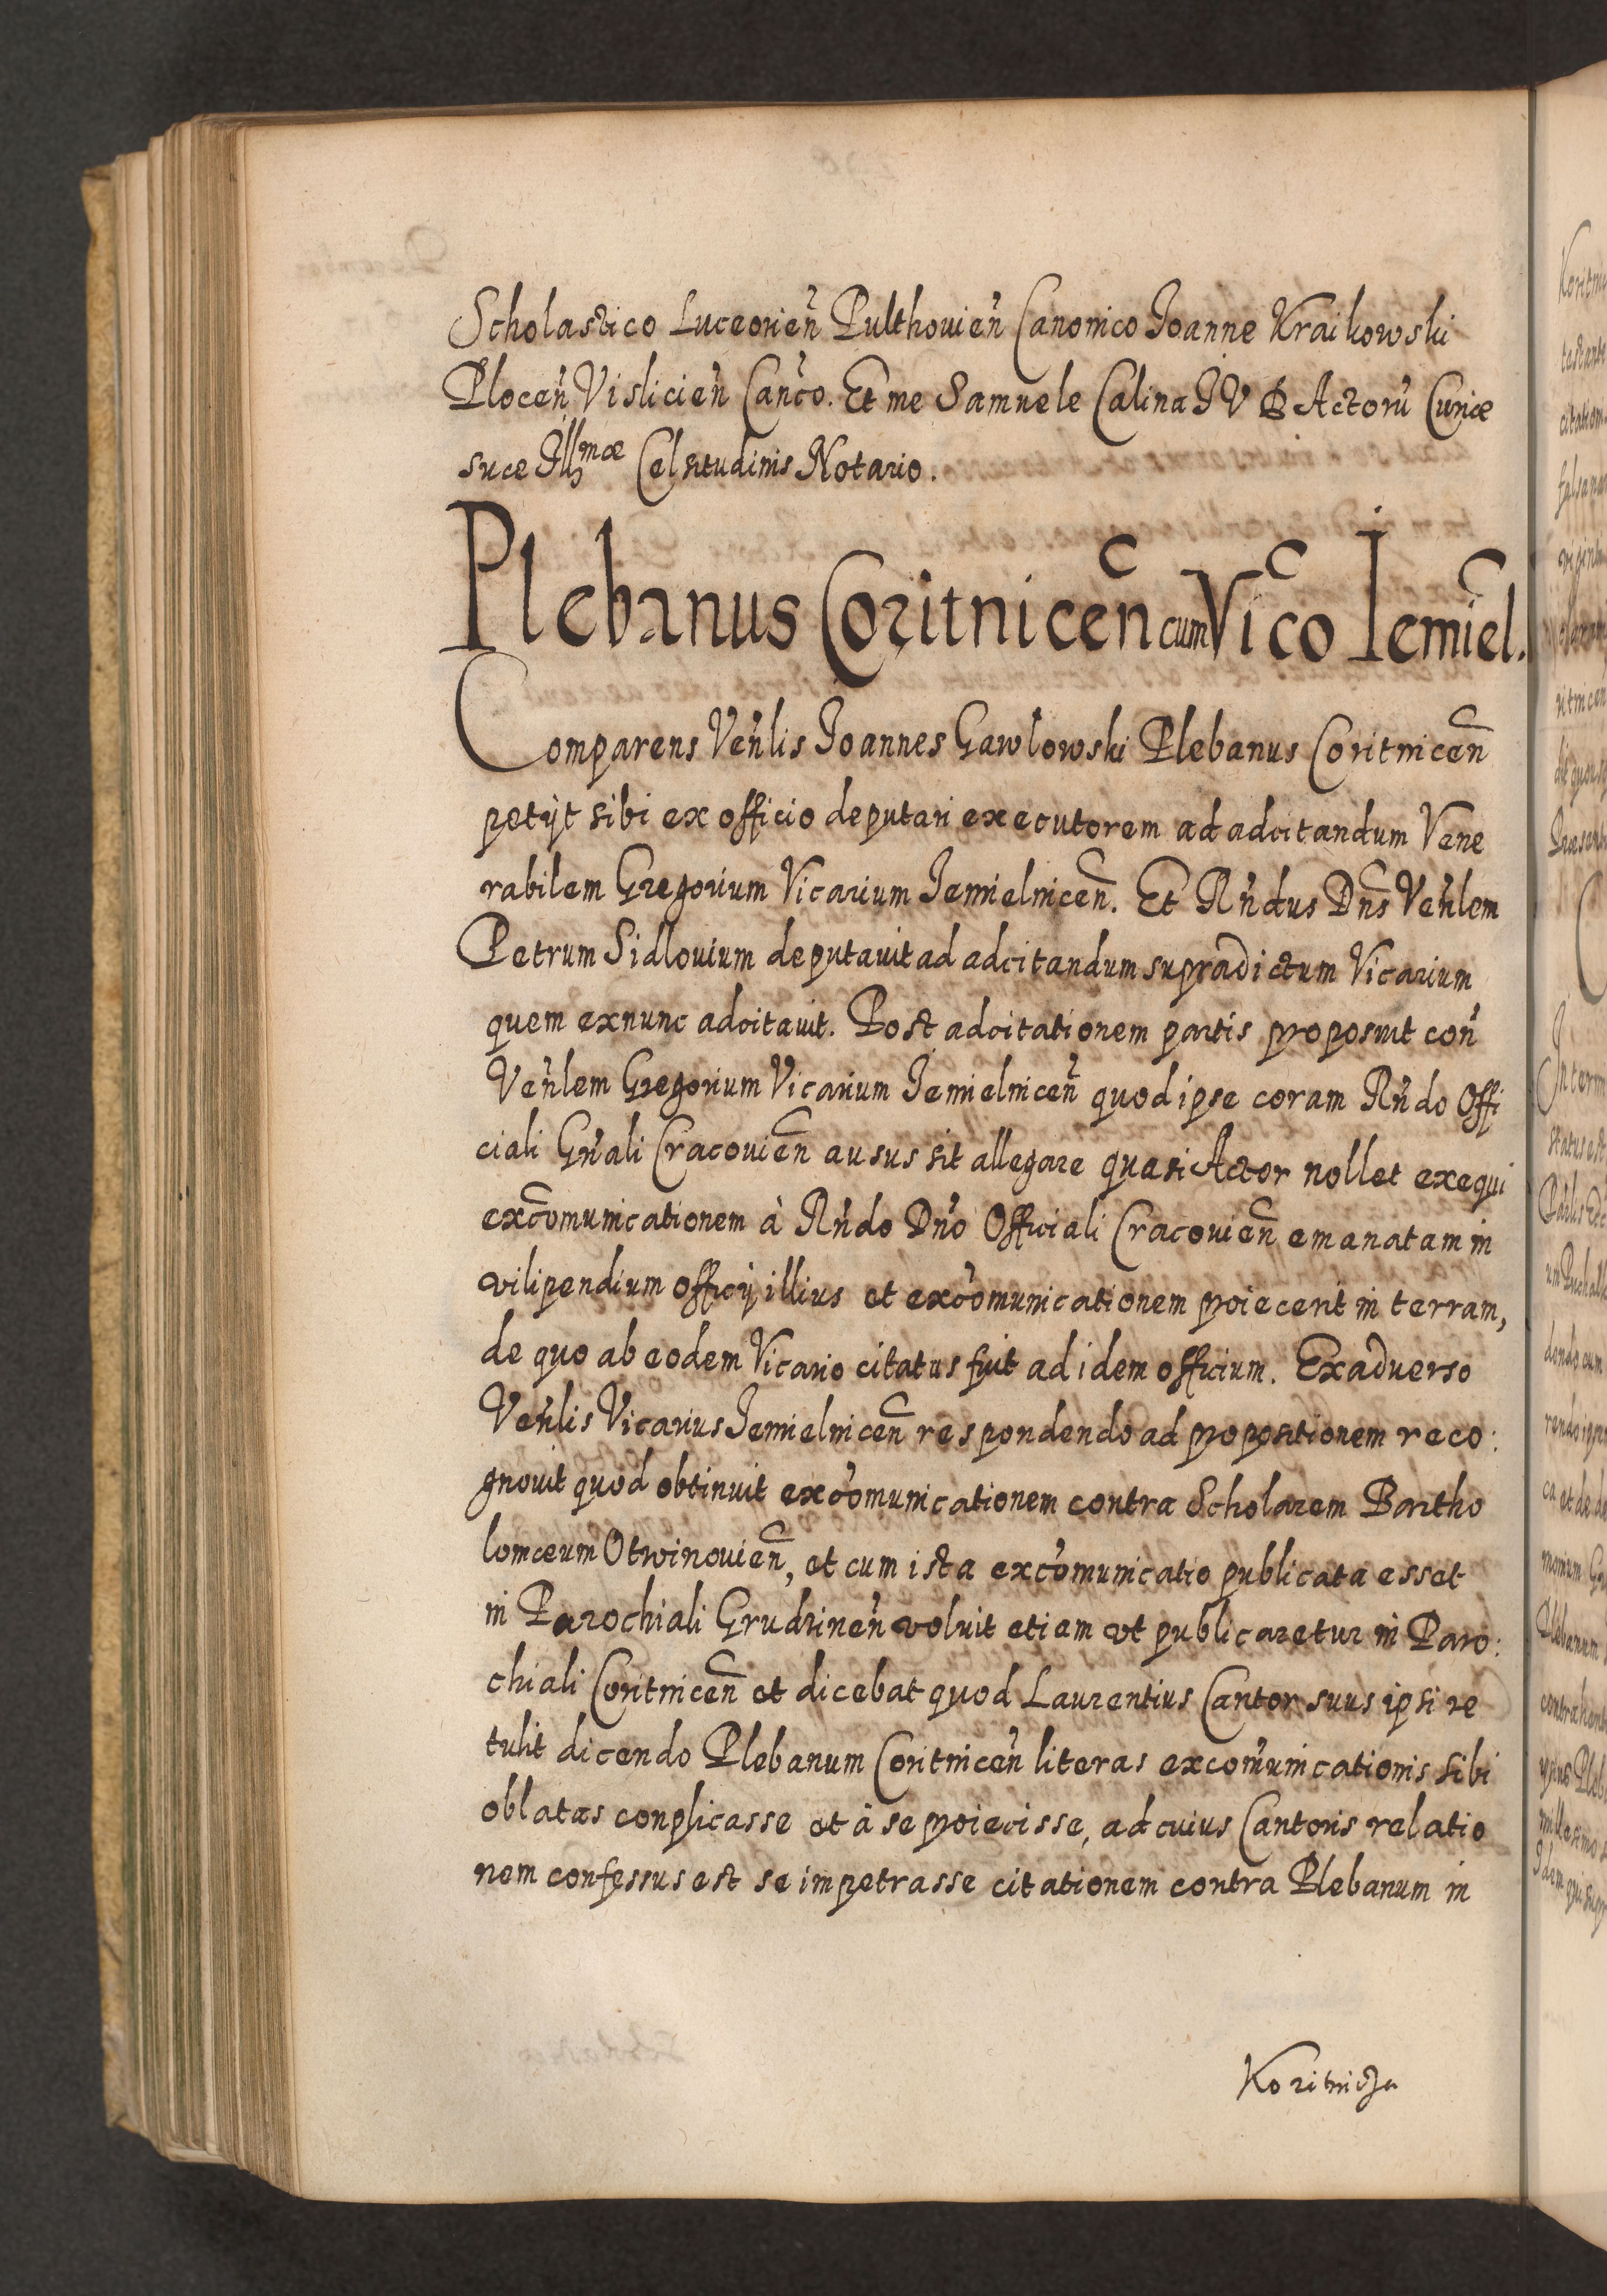 Scholastico Luceorien̄ Pulthovien̄ Canonico Joanne Kraikowski
Plocen̄ Vislicien̄ Canc̄o. Et me Samuele Calina J V D Actorū Curiæ
suæ Illmæ Celsitudinis Notario.
Plebanus Coritnicen̄ cum Vic̄o Jemiel.
Comparens Ven̄lis Joannes Gawlowski Plebanus Coritnicen̄
petijt sibi ex officio deputari executorem ad adcitandum Vene
rabilem Gregorium Vicarium Jemielnicen̄. Et Rn̄dus Dn̄s Ven̄lem
Petrum Sidlovium deputavit ad adcitandum supradictum Vicarium
quem exnunc adcitavit. Post adcitationem partis proposuit con̄
Ven̄lem Gregorium Vicarium Jemielnicen̄ quod ipse coram Rn̄do Offi
ciali Gn̄ali Cracovien̄ ausus sit allegare quasi Actor nollet exequi
exc̄omunicationem à Rn̄do Dn̄o Officiali Cracovien̄ emanatam in
vilipendium officij illius et exc̄omunicationem proiecerit in terram,
de quo ab eodem Vicario citatus fuit ad idem officium. Exadverso
Ven̄lis Vicarius Jemielnicen̄ respondendo ad propositionem reco:
gnovit quod obtinuit exc̄omunicationem contra Scholarem Bartho
lomæum Otwinovien̄, et cum ista exc̄omunicatio publicata esset
in Parochiali Grudzinen̄ voluit etiam vt publicaretur in Paro:
chiali Coritnicen̄ et dicebat quod Laurentius Cantor suus ipsi re
tulit dicendo Plebanum Coritnicen̄ literas excom̄unicationis sibi
oblatas conplicasse et à se proiecisse, ad cuius Cantoris relatio
nem confessus est se impetrasse citationem contra Plebanum in